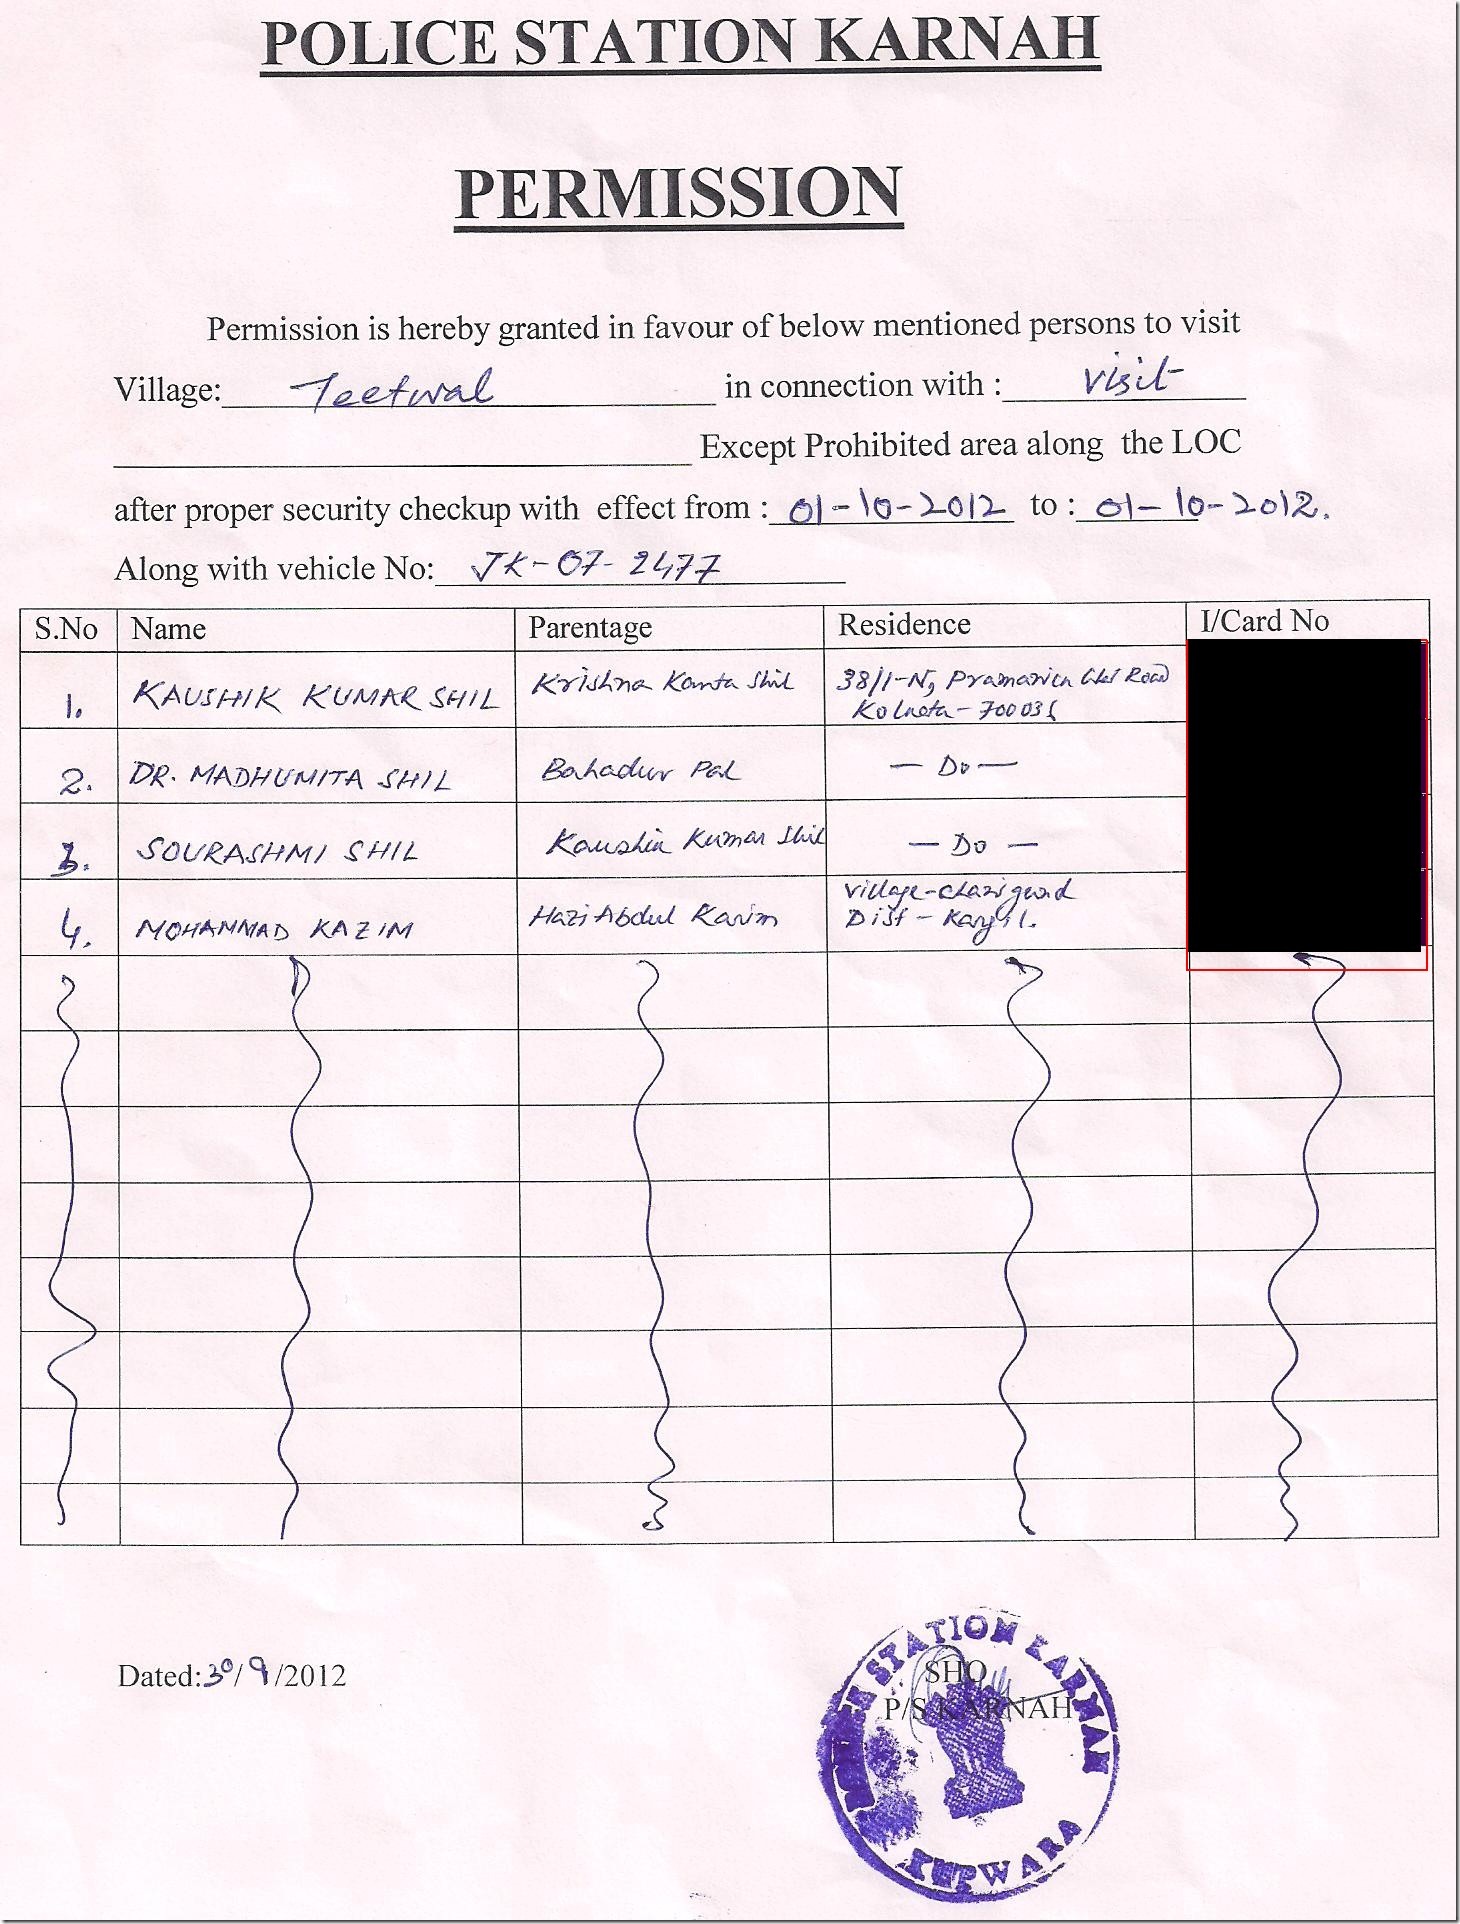 POLICE STATION KARNAH
PERMISSION
Permission is hereby granted in favour of below mentioned persons to visit
Village: Teetwal in connection with : visit
Except Prohibited area along the LOC
after proper security checkup with effect from : 01-10-2012 to : 01-10-2012.
Along with vehicle No: JK-07-2477
S.No Name Parentage Residence I/Card No
1. KAUSHIK KUMAR SHIL Krishna Kanta Shil 38/1-N, Pramanick Road
Kolkata - 700035
2. DR. MADHUMITA SHIL Bahadur Pal — Do —
3. SOURASHMI SHIL Kaushik Kumar Shil — Do —
4. MOHAMMAD KAZIM Hazi Abdul Karim Village-
Dist - Kargil.
Dated:30/9/2012
SHO
P/S KARNAH
STATION KARNAH
KUPWARA